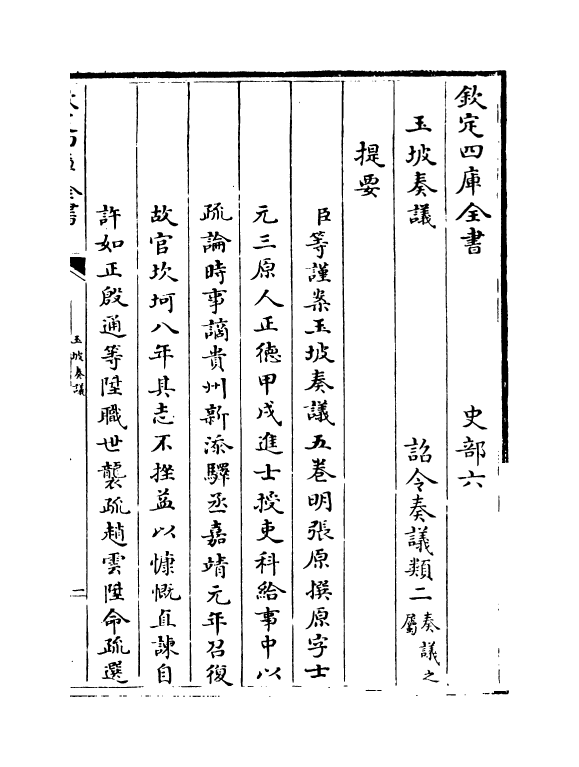 欽定四庫全書　史部六
玉坡奏議　詔令奏議類二奏議之屬
提要
臣等謹案玉坡奏議五卷明張原撰原字士
元三原人正德甲戌進士授吏科給事中以
疏論時事謫貴州新添驛丞嘉靖元年召復
故官坎坷八年其志不挫益以慷慨直諫自
許如正殷通等陞職世襲疏趙雲陞命疏選
玉坡奏議
一